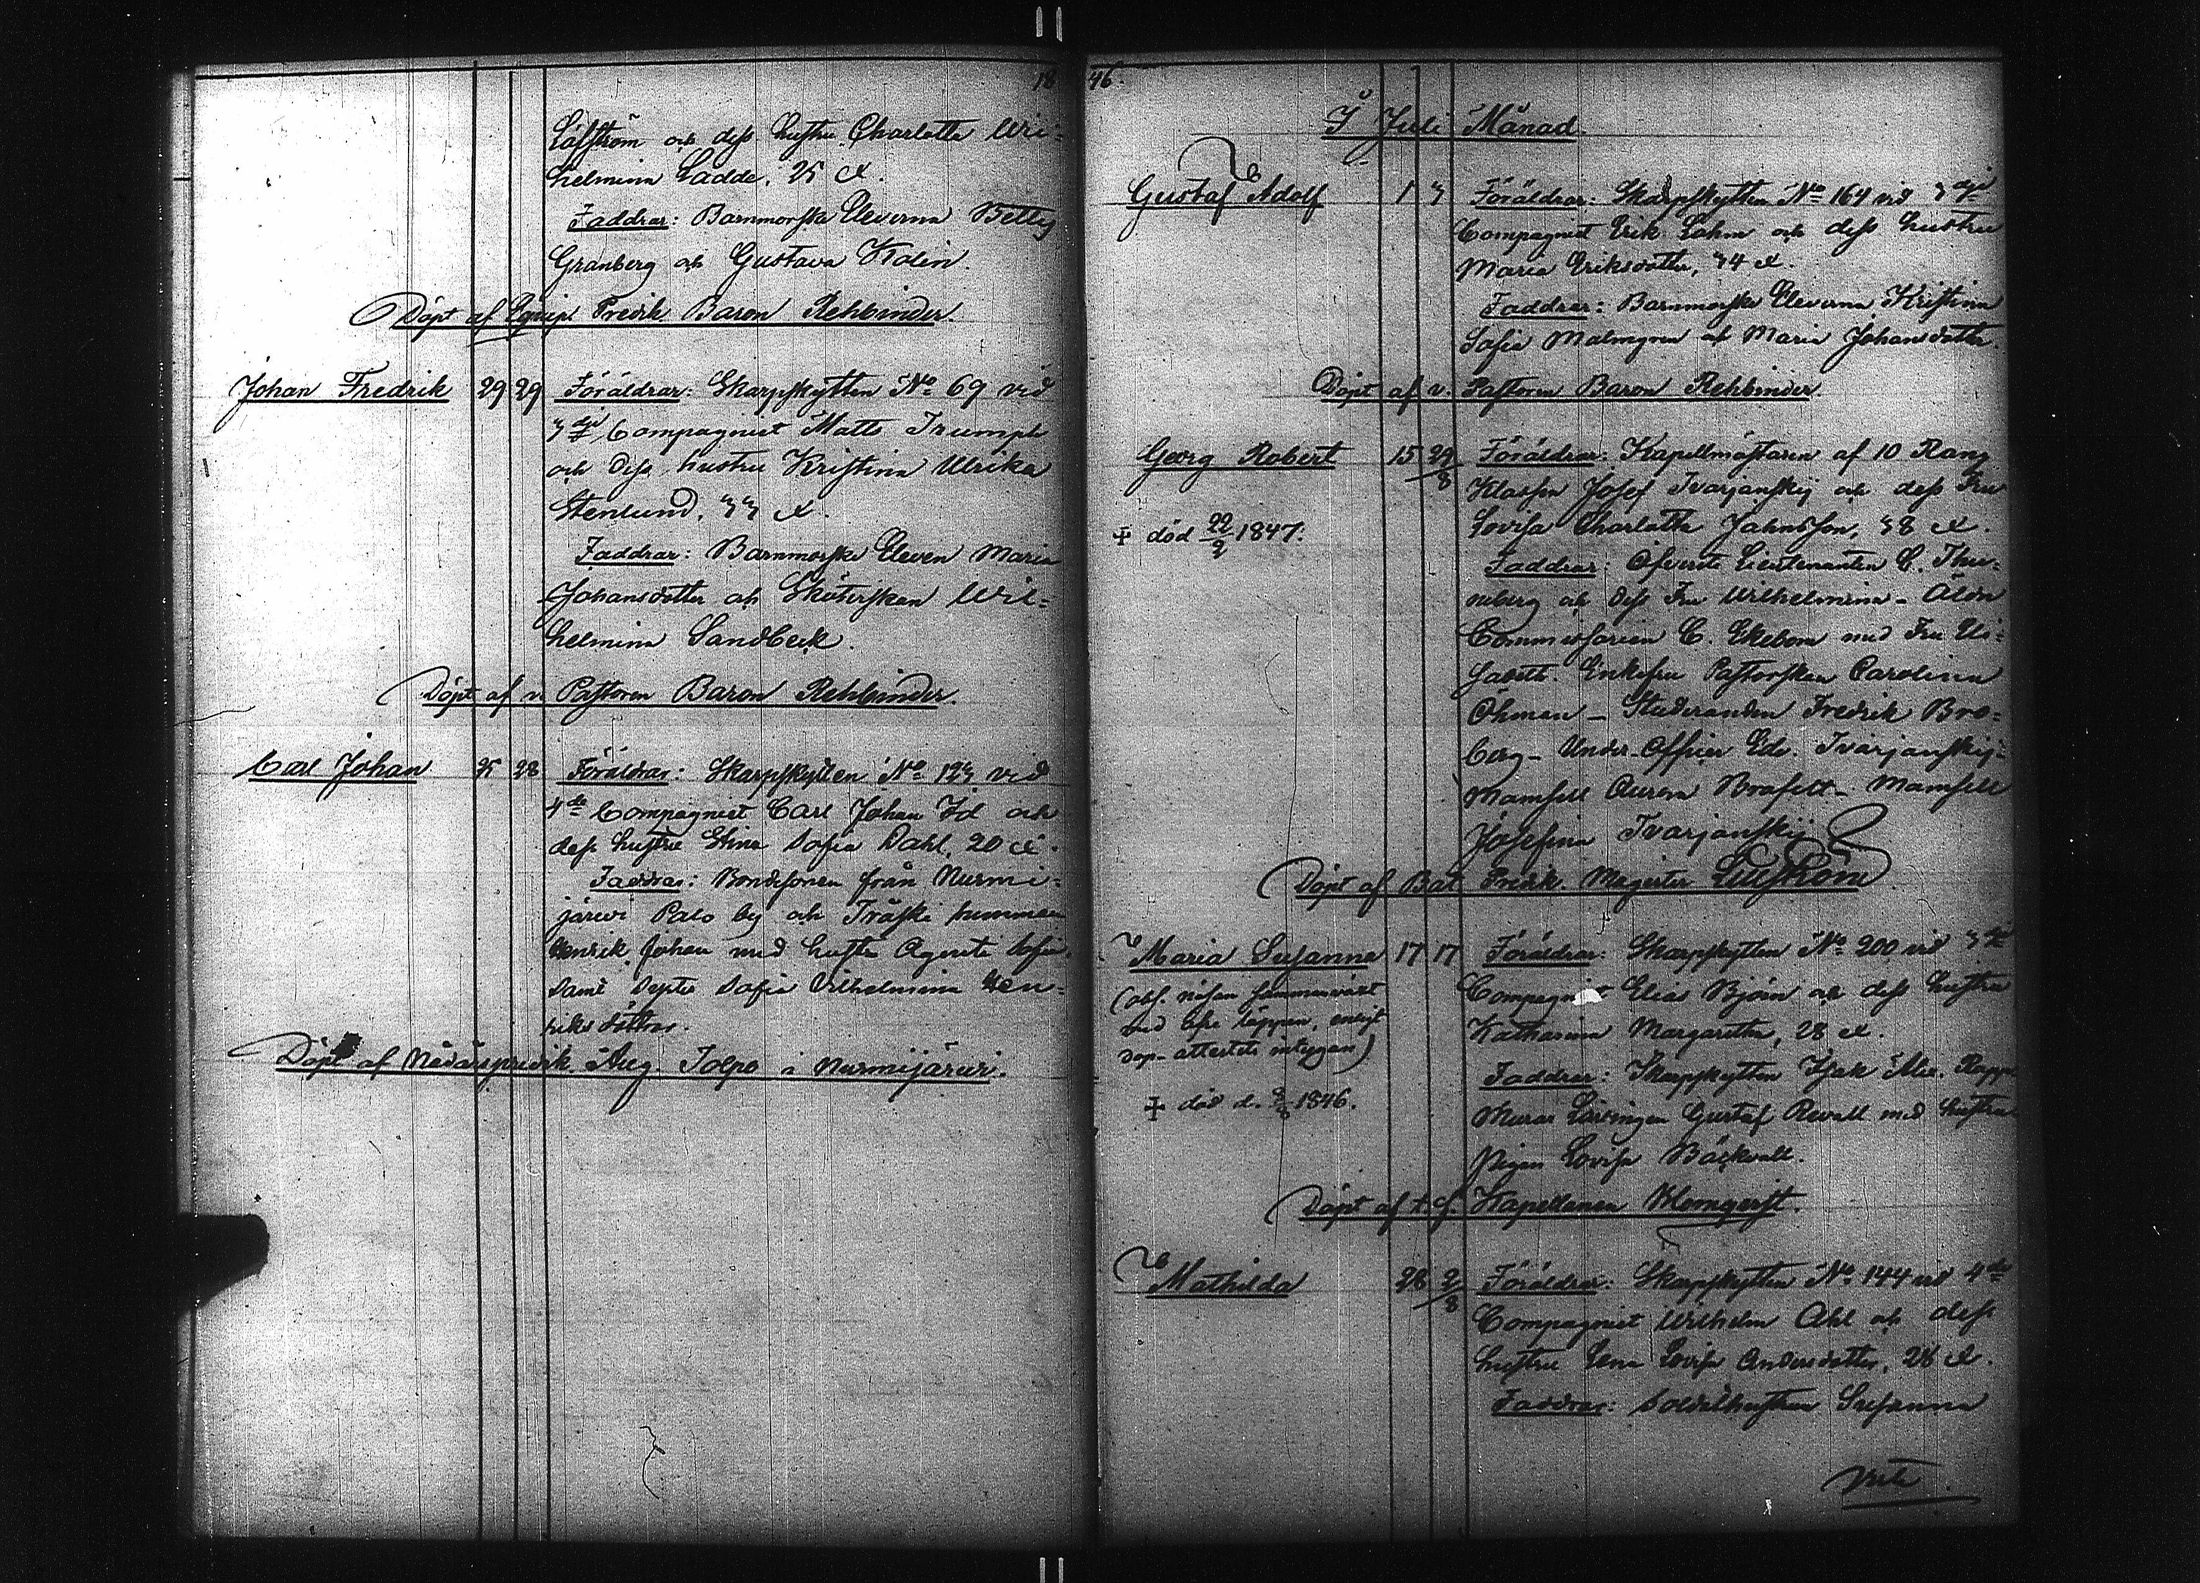 18
Löfström och dess hustru Charlotta Wil-
helmina Ladde, 25 år.
Faddrar: Barnmorske Eleverna Betty
Granberg och Gustava Kolin.
Döpt af Equip. Predik Baron Rehbinder.
Johan Fredrik 29 29 Föräldrar: Skarpskytten No 69 vid
3dje Compagniet Matts Trumph
och dess hustru Kristina Ulrika
Stenlund, 33 år.
Faddrar: Barnmorske Eleven Maria
Johansdotter och Sköterskan Wil-
helmina Sandbeck.
Döpt af v. Pastoren Baron Rehbinder.
Carl Johan 25 28 Föräldrar: Skarpskytten No 123 vid
4de Compagniet Carl Johan Id och
dess hustru Stina Sofia Dahl, 20 år.
Faddrar: Bondesonen från Nurmi-
järvi Palo by och Träski hemman
Henrik Johan med hustru Agneta Sofia
samt Sofia Vilhelmina Hen-
riksdotter.
Döpt af Nådårspredik. Aug. Tolpo i Nurmijärvi.
46.
I Juli Månad.
Gustaf Adolf 1 3 Föräldrar: Skarpskytten No 164 vid 3dje
Compagniet Erik Lohm och dess hustru
Maria Eriksdotter, 34 år.
Faddrar: Barnmorske Eleverna Kristina
Sofia Malmgren och Maria Johansdotter
Döpt af v. Pastoren Baron Rehbinder.
Georg Robert 15 29/8 Föräldrar: Kapellmästaren af 10 Rang
Klassen Josef Tvarjanskij och dess Fru
Lovisa Charlotta Jahnsson, 38 år.
+ död 22/2 1847.
Faddrar: Öfverste Lieutenanten C. Thu-
neberg och dess Fru Wilhelmina –
Commissarien C. Ekebom med Fru Eli-
sabeth. Enkefru Pastorskan Carolina
Öhman – Studeranden Fredrik Bro-
berg – Under-Officer Edv. Tvarjanskij –
Mamsell Aurora Brofelt – Mamsell
Josefina Tvarjanskij
Döpt af Bat. Predik. Magister
Maria Susanna 17 17 Föräldrar: Skarpskytten No 200 vid 3dje
Compagniet Elias Björn och dess hustru
Katharina Margaretha, 28 år.
(obs. näsan sammanväxt
med läppen, enligt
dop-attestets intygan)
+ död d. 1846.
Faddrar: Skarpskytten Isak
Murar Lärlingen Gustaf Revall med hustru
Pigan Lovisa Bäckvall.
Döpt af t.f. Kapellanen Blomqvist.
Mathilda 28 2/8 Föräldrar: Skarpskytten No 144 vid 4de
Compagniet Wilhelm Ahl och dess
hustru Lena Lovisa Andersdotter, 28 år.
Faddrar: Soldathustrun Susanna